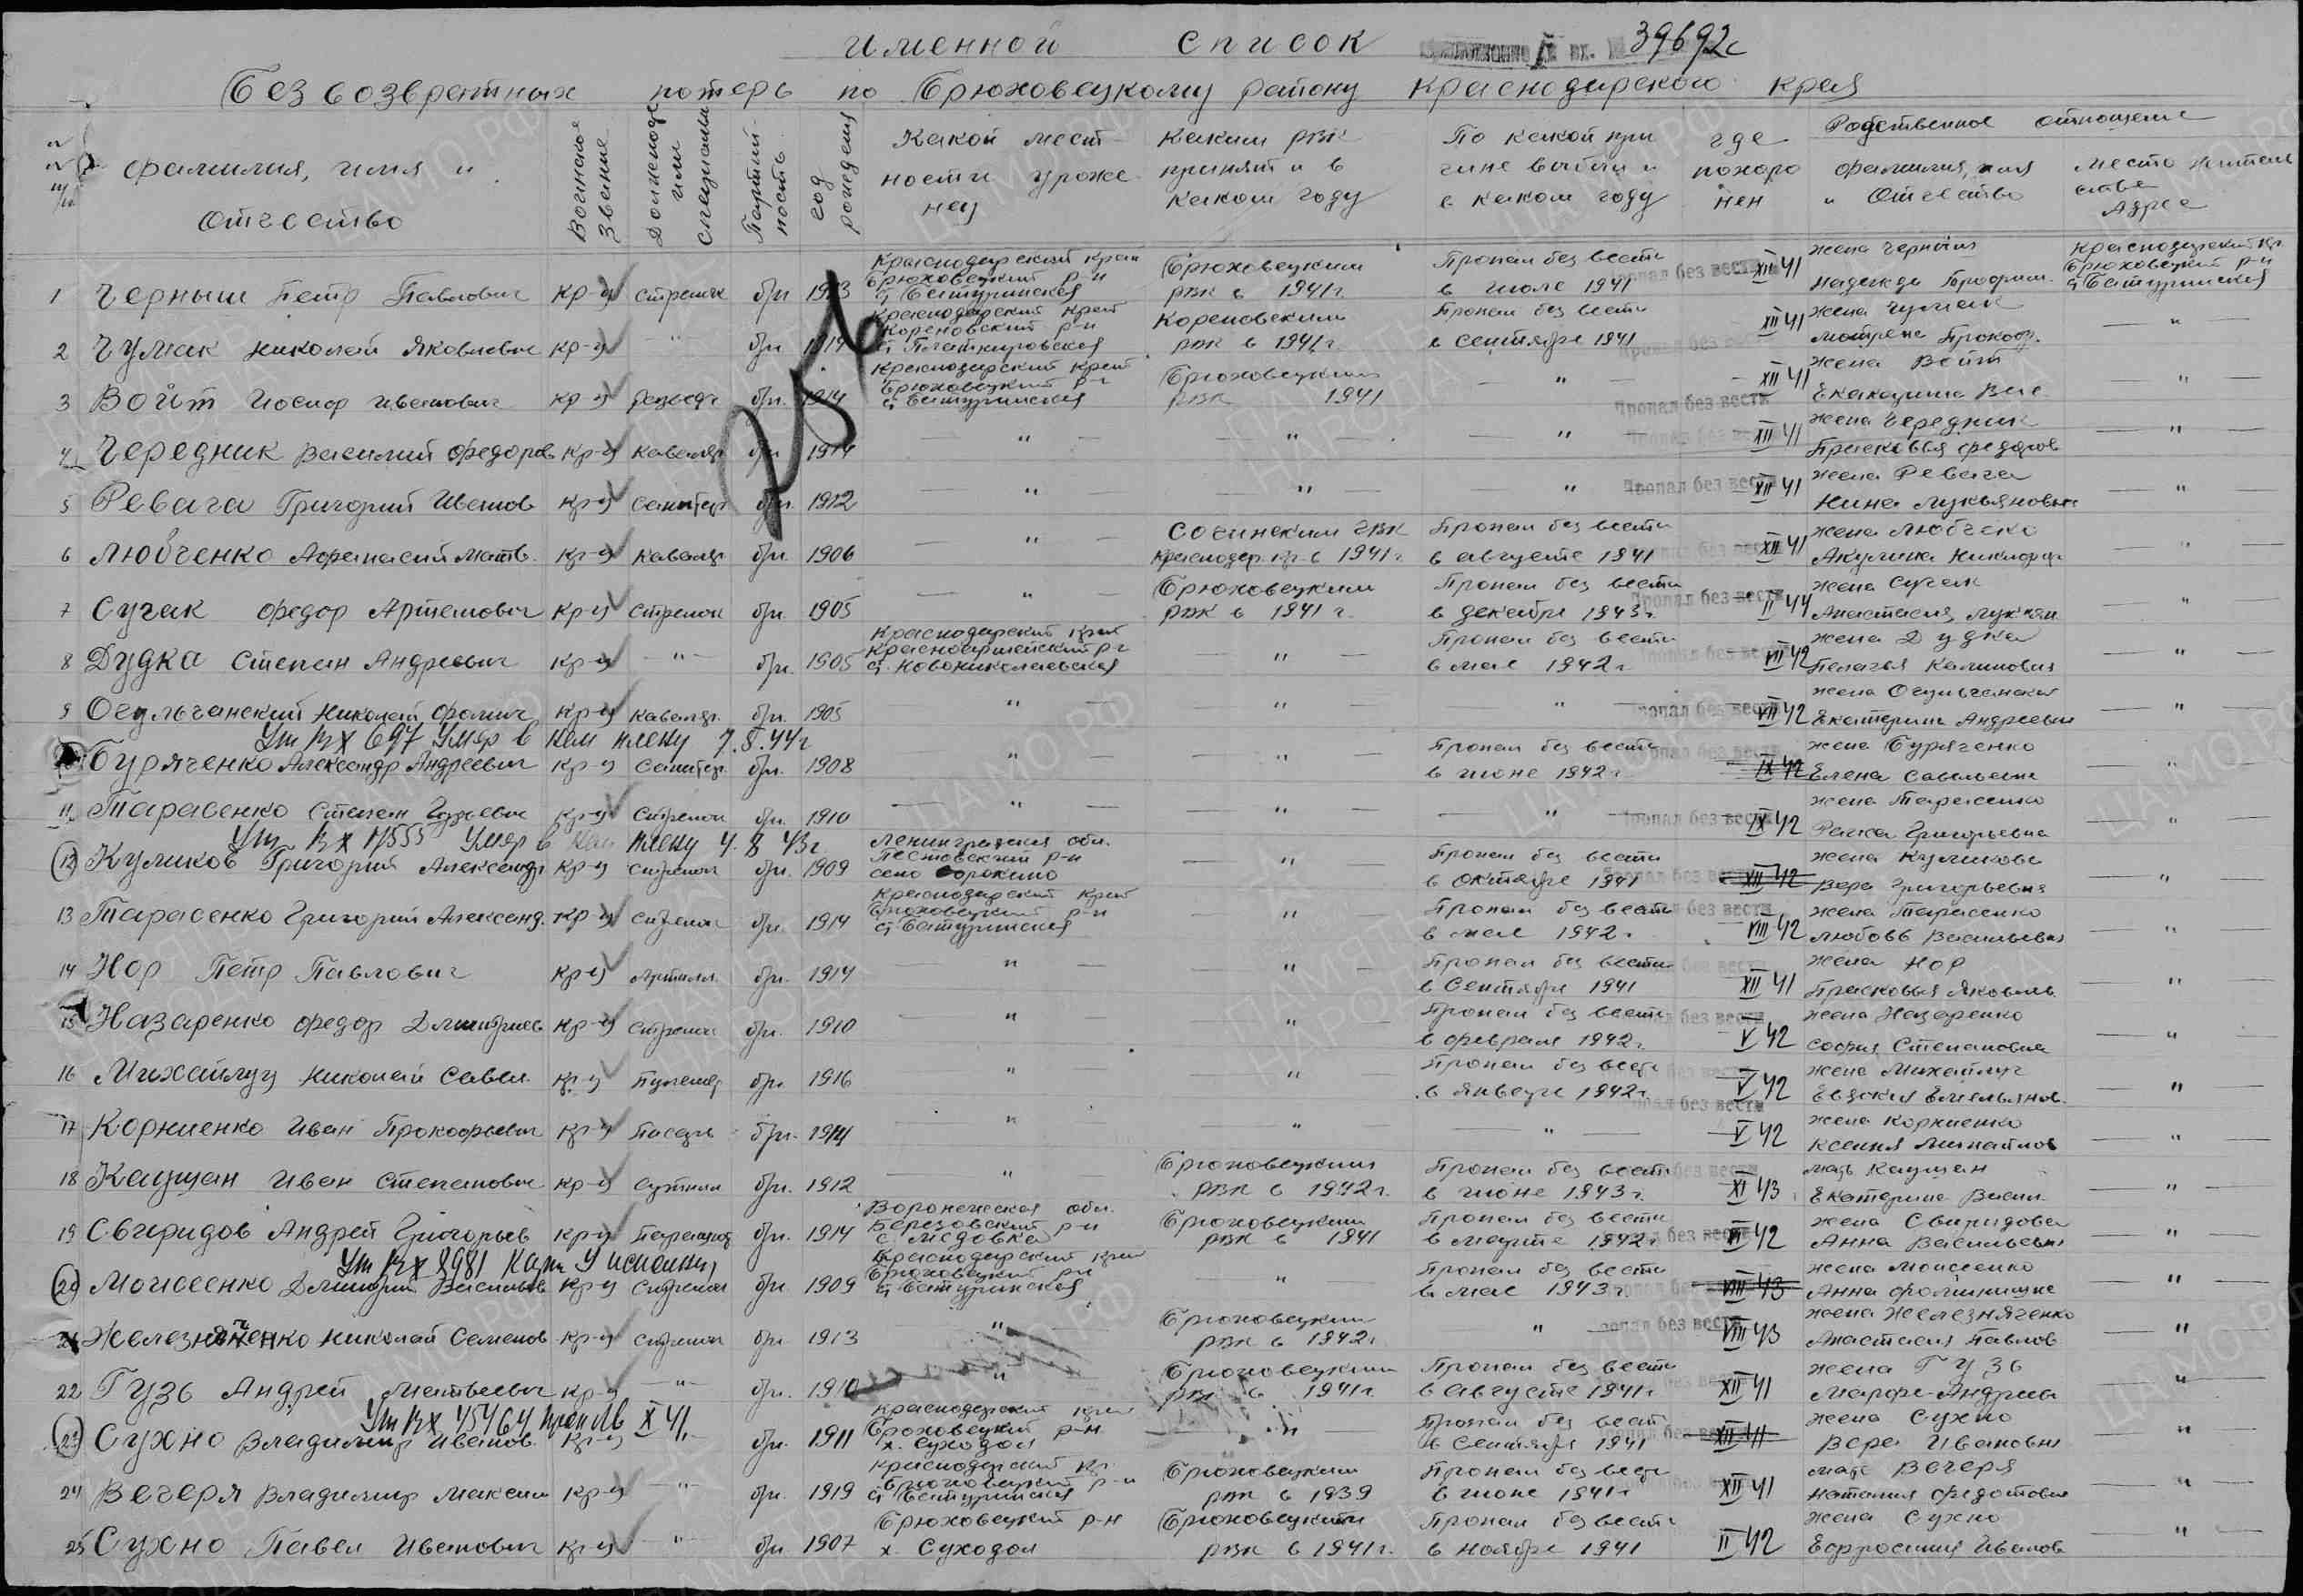 Именной список вх. 39692с
Безвозвратных потерь по Брюховецкому району Краснодарского края
Фамилия, имя и отчество
Воинское звание
Должность или специальность
Партийность
год рождения
Какой местности уроженец
Каким РВК принят и в каком году
По какой причине выбыл и в каком году
где похоронен
Родственное отношение
фамилия, имя и отчество
место жительства Адрес
1 Черныш Петр Павлович кр-ц стрелок бп 1913 Краснодарский край Брюховецкий р-н ст. Батуринская Брюховецким РВК в 1941г. Пропал без вести в июле 1941 XII 41 жена Черныш Надежда Краснодарский кр. Брюховецкий р-н ст. Батуринская
2 Чумак Николай Яковлевич кр-ц " бп. 1914 Краснодарский край Кореновский р-н ст. Платнировская Кореновским РВК в 1941г. Пропал без вести в сентябре 1941 XII 41 жена Чумак Матрена Прокоф. "
3 Войт Иосиф Иванович кр-ц развед. бп. 1914 Краснодарский край Брюховецкий р-н ст. Батуринская Брюховецким РВК 1941 " XII 41 жена Войт Екатерина "
4 Чередник Василий Федоров кр-ц кавалер. бп 1914 " " " XII 41 жена Чередник Прасковья Федоров "
5 Ревага Григорий Иванов кр-ц санитар бп. 1912 " " " XII 41 жена Ревага Нина Лукьяновна "
6 Любченко Афанасий Матв. кр-ц кавалер. бп. 1906 " Сочинским ГВК Краснодар. кр. в 1941г. Пропал без вести в августе 1941 XII 41 жена Любченко Акулина Никифор "
7 Сучак Федор Артемович кр-ц стрелок бп. 1905 " Брюховецким РВК в 1941 г. Пропал без вести в декабре 1943г. II 44 жена Сучак Анастасия Лукьян. "
8 Дудка Степан Андреевич кр-ц " бп. 1905 Краснодарский край Красноармейский р-н ст. Новониколаевская " Пропал без вести в мае 1942г. VII 42 жена Дудка Пелагея Калиновна "
9 Огульчанский Николай Фомич кр-ц кавалер. бп. 1905 " " " VII 42 жена Огульчанская Екатерина Андреевна "
Ут вх 697 Умер в нем плену 7.5.44г
Буряченко Александр Андреевич кр-ц санитар бп. 1908 " " Пропал без вести в июне 1942г. IX 42 жена Буряченко Елена Савельевна "
11 Тарасенко Степан кр-ц стрелок бп. 1910 " " " IX 42 жена Тарасенко Раиса Григорьевна "
Ут вх 17555 Умер в плену 4.8 43г
12 Куликов Григорий Александр кр-ц стрелок бп. 1909 Ленинградская обл. Пестовский р-н село Сорокино " Пропал без вести в октябре 1941 XII 42 жена Куликова Вера Григорьевна "
13 Тарасенко Григорий Александ. кр-ц стрелок бп. 1914 Краснодарский край Брюховецкий р-н ст. Батуринская " Пропал без вести в мае 1942г. VIII 42 жена Тарасенко Любовь Васильевна "
14 Нор Петр Павлович кр-ц артилл. бп. 1914 " " Пропал без вести в сентябре 1941 XII 41 жена Нор Прасковья Яковлев. "
15 Назаренко Федор Дмитриев кр-ц стрелок бп. 1910 " " Пропал без вести в феврале 1942г. V 42 жена Назаренко София Степановна "
16 Михайлуц Николай Савел. кр-ц пулемет бп. 1916 " " Пропал без вести в январе 1942г. V 42 жена Михайлуц Евдокия Емельянов. "
17 Корниенко Иван Прокофьевич кр-ц писарь бп. 1914 " " " V 42 жена Корниенко Ксения Михайлов "
18 Каущан Иван Степанович кр-ц бп. 1912 " Брюховецким РВК в 1942г. Пропал без вести в июне 1943г. XI 43 мать Каущан Екатерина Васил. "
19 Свиридов Андрей Григорьев кр-ц бп. 1914 Воронежская обл. Березовский р-н с. Медовка Брюховецким РВК в 1941 Пропал без вести в марте 1942г. VI 42 жена Свиридова Анна Васильевна "
Ут вх 8981
20 Моисеенко Дмитрий Васильев кр-ц стрелок бп. 1909 Краснодарский край Брюховецкий р-н ст. Батуринская " Пропал без вести в мае 1943г. VIII 43 жена Моисеенко Анна "
21 Железняченко Николай Семенов кр-ц стрелок бп. 1913 " Брюховецким РВК в 1942г. " VIII 43 жена Железняченко Анастасия Павлов "
22 Гузь Андрей Матвеевич кр-ц " бп. 1910 " Брюховецким РВК в 1941г. Пропал без вести в августе 1941г. XII 41 жена Гузь Марфа Андреев "
Ут вх 45464 X 41.
23 Сухно Владимир Иванов. кр-ц бп. 1911 Краснодарский край Брюховецкий р-н х. Суходол " Пропал без вест в сентябре 1941 XII 41 жена Сухно Вера Ивановна "
24 Вечеря Владимир Максим кр-ц " бп. 1919 Краснодарский кр. Брюховецкий р-н ст. Батуринская Брюховецким РВК в 1939 Пропал без вести в июне 1941г. XII 41 мать Вечеря Наталия Федотовна "
25 Сухно Павел Иванович кр-ц " бп 1907 Брюховецкий р-н х. Суходол Брюховецким РВК в 1941г. Пропал без вести в ноябре 1941 II 42 жена Сухно Ефросиния Иванов "